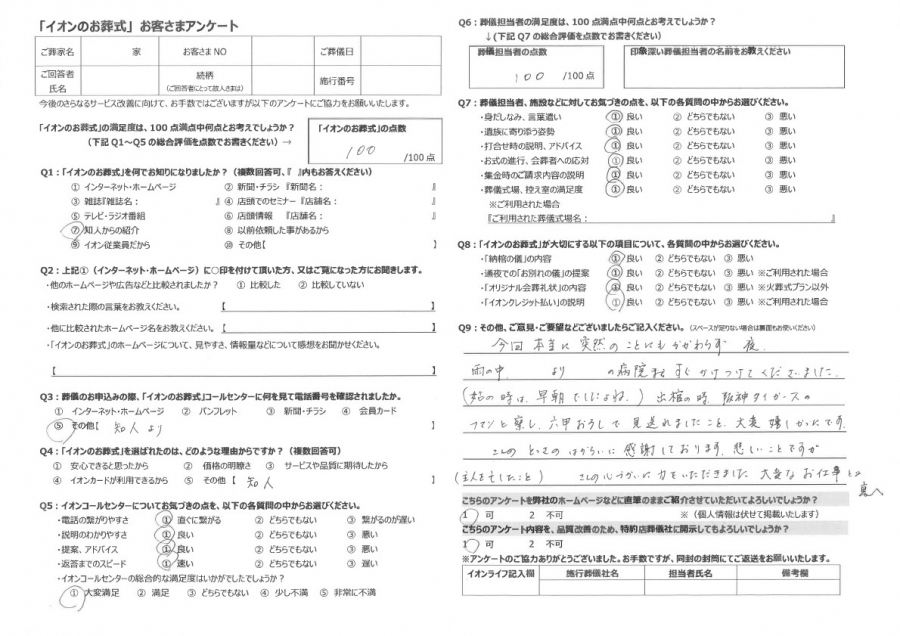 「イオンのお葬式」お客さまアンケート
ご葬家名 家 お客さまNO ご葬儀日
ご回答者氏名 続柄 (ご回答者にとって故人さまは) 施行番号
今後のさらなるサービス改善に向けて、お手数ではございますが以下のアンケートにご協力をお願いいたします。
「イオンのお葬式」の満足度は、100点満点中何点とお考えでしょうか?
(下記Q1～Q5の総合評価を点数でお書きください) →
「イオンのお葬式」の点数
100 /100点
Q1:「イオンのお葬式」を何でお知りになりましたか?(複数回答可、『 』内もお答えください)
① インターネット・ホームページ ② 新聞・チラシ『新聞名: 』
③ 雑誌『雑誌名: 』 ④ 店頭でのセミナー『店舗名: 』
⑤ テレビ・ラジオ番組 ⑥ 店頭情報 『店舗名: 』
⑦ 知人からの紹介 ⑧ 以前依頼した事があるから
⑨ イオン従業員だから ⑩ その他【 】
Q2:上記①(インターネット・ホームページ)に○印を付けて頂いた方、又はご覧になった方にお聞きします。
・他のホームページや広告などと比較されましたか? ① 比較した ② 比較していない
・検索された際の言葉をお教えください。 【 】
・他に比較されたホームページ名をお教えください。【 】
・「イオンのお葬式」のホームページについて、見やすさ、情報量などについて感想をお聞かせください。
【 】
Q3:葬儀のお申込みの際、「イオンのお葬式」コールセンターに何を見て電話番号を確認されましたか。
① インターネット・ホームページ ② パンフレット ③ 新聞・チラシ ④ 会員カード
⑤ その他【 知人より 】
Q4:「イオンのお葬式」を選ばれたのは、どのような理由からですか?(複数回答可)
① 安心できると思ったから ② 価格の明瞭さ ③ サービスや品質に期待したから
④ イオンカードが利用できるから ⑤ その他【 知人 】
Q5:イオンコールセンターについてお気づきの点を、以下の各質問の中からお選びください。
・電話の繋がりやすさ ① 直ぐに繋がる ② どちらでもない ③ 繋がるのが遅い
・説明のわかりやすさ ① 良い ② どちらでもない ③ 悪い
・提案、アドバイス ① 良い ② どちらでもない ③ 悪い
・返答までのスピード ① 速い ② どちらでもない ③ 遅い
・イオンコールセンターの総合的な満足度はいかがでしたでしょうか?
① 大変満足 ② 満足 ③ どちらでもない ④ 少し不満 ⑤ 非常に不満
Q6:葬儀担当者の満足度は、100点満点中何点とお考えでしょうか?
↓(下記Q7の総合評価を点数でお書きください)
葬儀担当者の点数
100 /100点
印象深い葬儀担当者の名前をお教えください
Q7:葬儀担当者、施設などに対してお気づきの点を、以下の各質問の中からお選びください。
・身だしなみ、言葉遣い ① 良い ② どちらでもない ③ 悪い
・遺族に寄り添う姿勢 ① 良い ② どちらでもない ③ 悪い
・打合せ時の説明、アドバイス ① 良い ② どちらでもない ③ 悪い
・お式の進行、会葬者への応対 ① 良い ② どちらでもない ③ 悪い
・集金時のご請求内容の説明 ① 良い ② どちらでもない ③ 悪い
・葬儀式場、控え室の満足度 ① 良い ② どちらでもない ③ 悪い
※ご利用された場合
『ご利用された葬儀式場名: 』
Q8:「イオンのお葬式」が大切にする以下の項目について、各質問の中からお選びください。
・「納棺の儀」の内容 ① 良い ② どちらでもない ③ 悪い
・通夜での「お別れの儀」の提案 ① 良い ② どちらでもない ③ 悪い ※ご利用された場合
・「オリジナル会葬礼状」の内容 ① 良い ② どちらでもない ③ 悪い ※火葬式プラン以外
・「イオンクレジット払い」の説明 ① 良い ② どちらでもない ③ 悪い ※ご利用された場合
Q9:その他、ご意見・ご要望などございましたらご記入ください。(スペースが足りない場合は裏面もお使いください)
今回 本当に 突然の ことにもかかわらず 夜、
雨の中、 より の病院まで すぐ かけつけてくださいました。
(始の時は、早朝でしたよね。) 出棺の時、阪神タイガースの
フアンと察し、六甲おろしで見送れましたこと、大変嬉しかったです。
このとっさのはからいに感謝しております。悲しいことですが
(主人を亡したこと) この心づかいに力をいただきました。大変なお仕事と思へ
こちらのアンケートを弊社のホームページなどに直筆のままご紹介させていただいてよろしいでしょうか?
1 可 2 不可 ※(個人情報は伏せて掲載いたします)
こちらのアンケート内容を、品質改善のため、特約店葬儀社に開示してもよろしいでしょうか?
1 可 2 不可
※アンケートのご協力ありがとうございました。お手数ですが、同封の封筒にてご返送をお願いいたします。
イオンライフ記入欄 施行葬儀社名 担当者氏名 備考欄